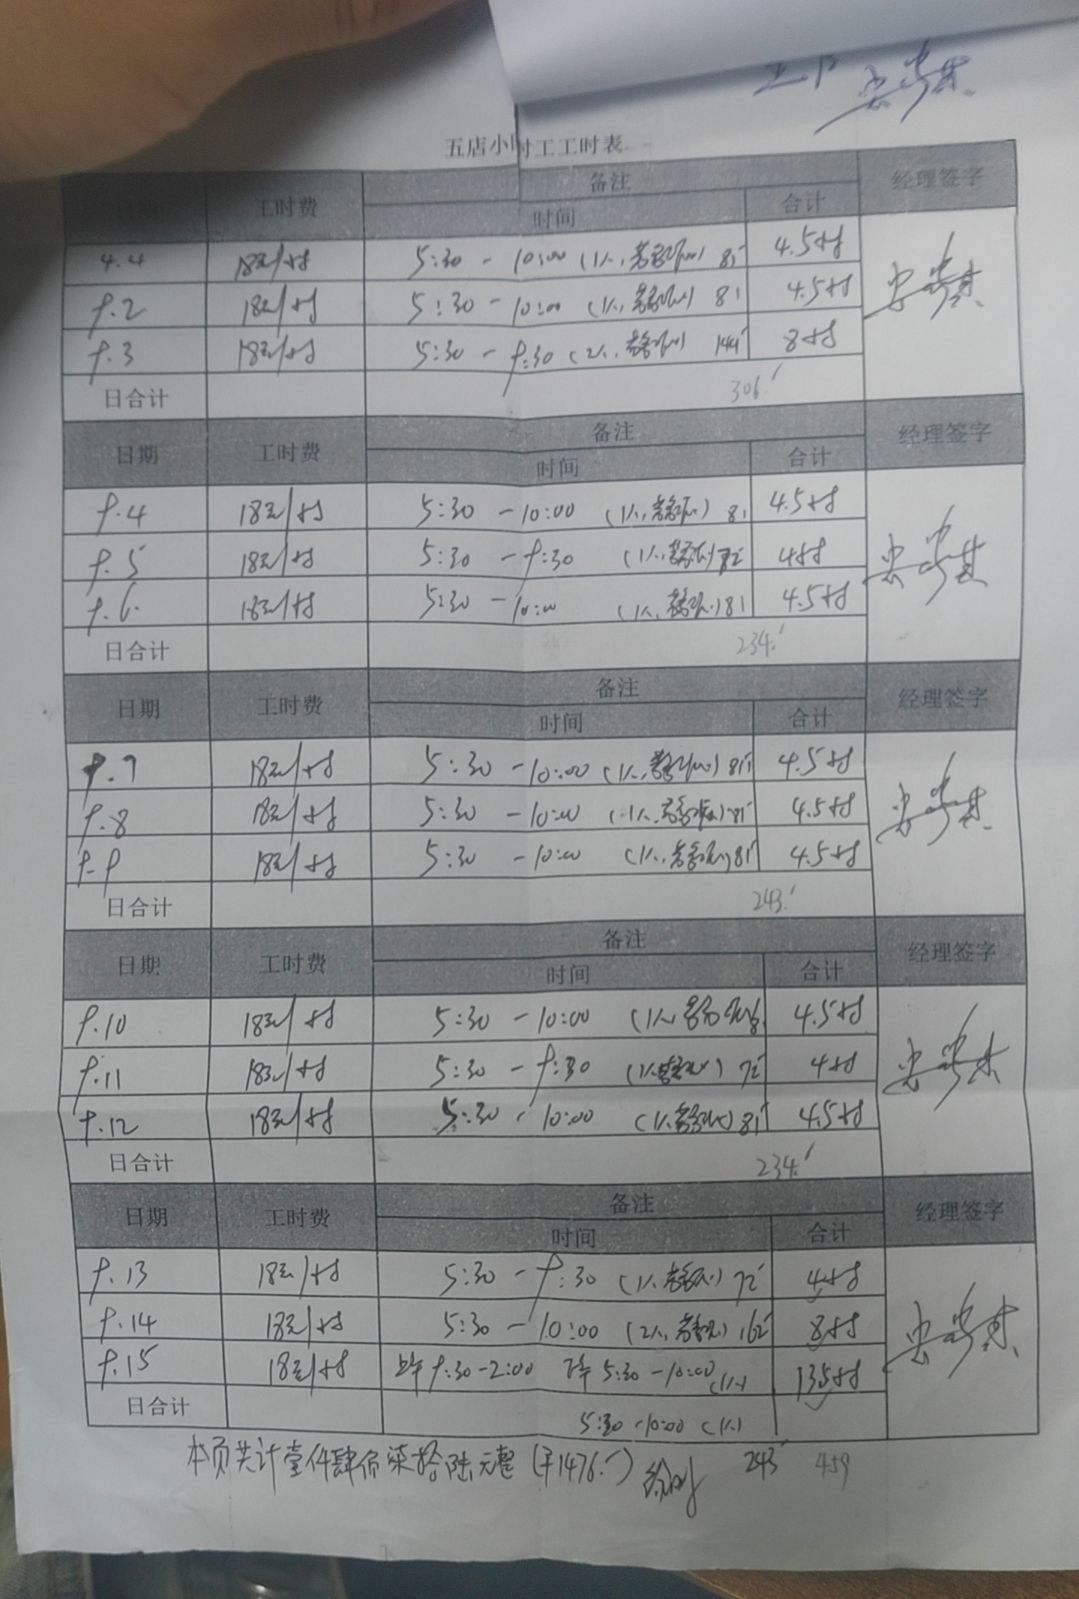 五店小时工工时表
日期 工时费 备注 经理签字
时间 合计
4.4 18元/时 5:30 - 10:00 (1人, 81 4.5时
9.2 18元/时 5:30 - 10:00 (1人, 81 4.5时
9.3 18元/时 5:30 - 9:30 (2人, 144 8时
日合计 306.
日期 工时费 备注 经理签字
时间 合计
9.4 18元/时 5:30 - 10:00 (1人, ) 81 4.5时
9.5 18元/时 5:30 - 9:30 (1人, ) 72 4时
9.6 18元/时 5:30 - 10:00 (1人, ) 81 4.5时
日合计 234.
日期 工时费 备注 经理签字
时间 合计
9.7 18元/时 5:30 - 10:00 (1人, ) 81 4.5时
9.8 18元/时 5:30 - 10:00 (1人, ) 81 4.5时
9.9 18元/时 5:30 - 10:00 (1人, ) 81 4.5时
日合计 243.
日期 工时费 备注 经理签字
时间 合计
9.10 18元/时 5:30 - 10:00 (1人, 4.5时
9.11 18元/时 5:30 - 9:30 (1人, ) 72 4时
9.12 18元/时 5:30 - 10:00 (1人, ) 81 4.5时
日合计 234.
日期 工时费 备注 经理签字
时间 合计
9.13 18元/时 5:30 - 9:30 (1人, ) 72 4时
9.14 18元/时 5:30 - 10:00 (2人, ) 162 8时
9.15 18元/时 上午 9:30-2:00 下午 5:30-10:00 (1人) 13.5时
日合计 5:30-10:00 (1人)
本页共计壹仟肆佰柒拾陆元整 (¥1476.) 243 459